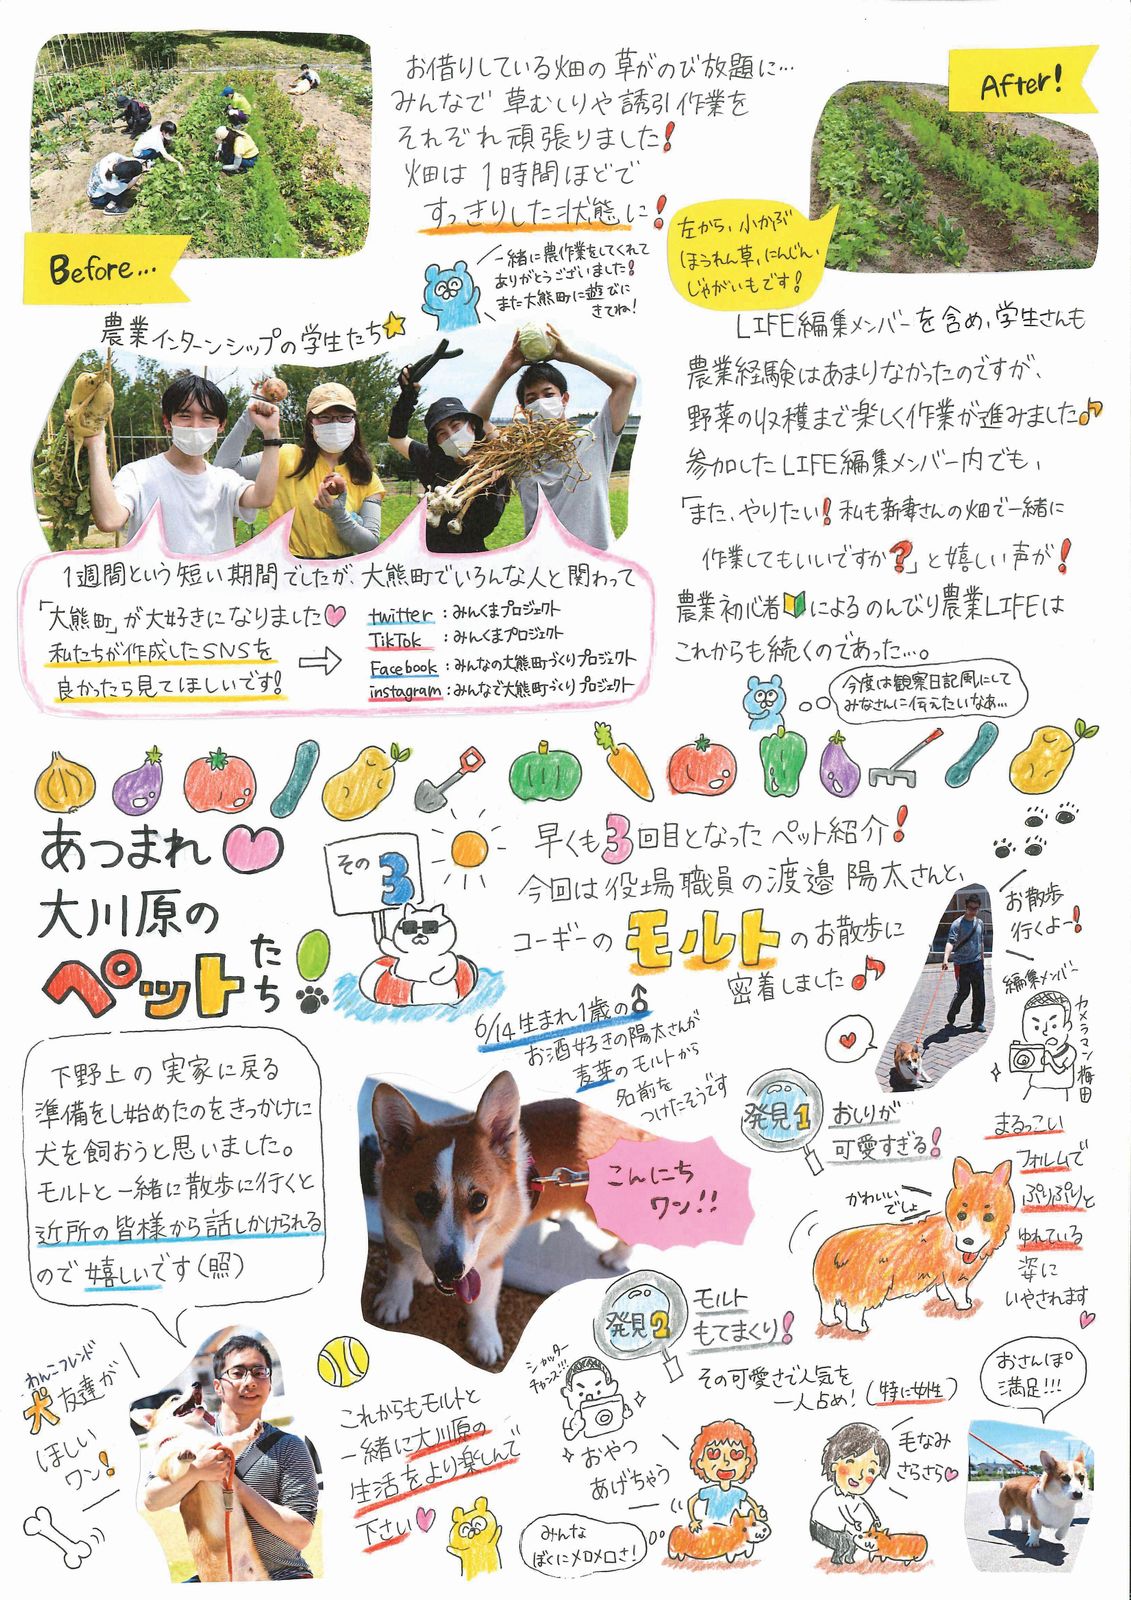 お借りしている畑の草がのび放題に…
みんなで草むしりや誘引作業を
それぞれ頑張りました！
畑は1時間ほどで
すっきりした状態に！
Before…
After!
左から、小かぶ
ほうれん草、にんじん、
じゃがいもです！
一緒に農作業をしてくれて
ありがとうございました！
また大熊町に遊びに
きてね！
農業インターンシップの学生たち
1週間という短い期間でしたが、大熊町でいろんな人と関わって
「大熊町」が大好きになりました
私たちが作成したSNSを
良かったら見てほしいです！
twitter：みんくまプロジェクト
TikTok：みんくまプロジェクト
Facebook：みんなの大熊町づくりプロジェクト
instagram：みんなで大熊町づくりプロジェクト
LIFE編集メンバーを含め、学生さんも
農業経験はあまりなかったのですが、
野菜の収穫まで楽しく作業が進みました♪
参加したLIFE編集メンバー内でも、
「また、やりたい！私も新妻さんの畑で一緒に
作業してもいいですか？」と嬉しい声が！
農業初心者🔰によるのんびり農業LIFEは
これからも続くのであった…。
今度は観察日記風にして
みなさんに伝えたいなぁ…
あつまれ♥
大川原の
ペットたち！
その3
早くも3回目となったペット紹介！
今回は役場職員の渡邉陽太さんと、
コーギーのモルトのお散歩に
密着しました♪
6/14生まれ1歳の♂
お酒好きの陽太さんが
麦芽のモルトから
名前を
つけたそうです
お散歩
行くよー！
編集メンバー
カメラマン梅田
下野上の実家に戻る
準備をし始めたのをきっかけに
犬を飼おうと思いました。
モルトと一緒に散歩に行くと
近所の皆様から話しかけられる
ので嬉しいです（照）
こんにち
ワン！！
発見1
おしりが
可愛すぎる！
まるっこい
フォルムで
ぷりぷりと
ゆれている
姿に
いやされます♥
かわいい
でしょ
発見2
モルト
もてまくり！
その可愛さで人気を
一人占め！（特に女性）
シャッター
チャンス!!!
おやつ
あげちゃう
みんな
ぼくにメロメロさ！
毛なみ
さらさら♥
おさんぽ
満足!!!
わんこフレンド
犬友達が
ほしい
ワン！
これからもモルトと
一緒に大川原の
生活をより楽しんで
下さい♥